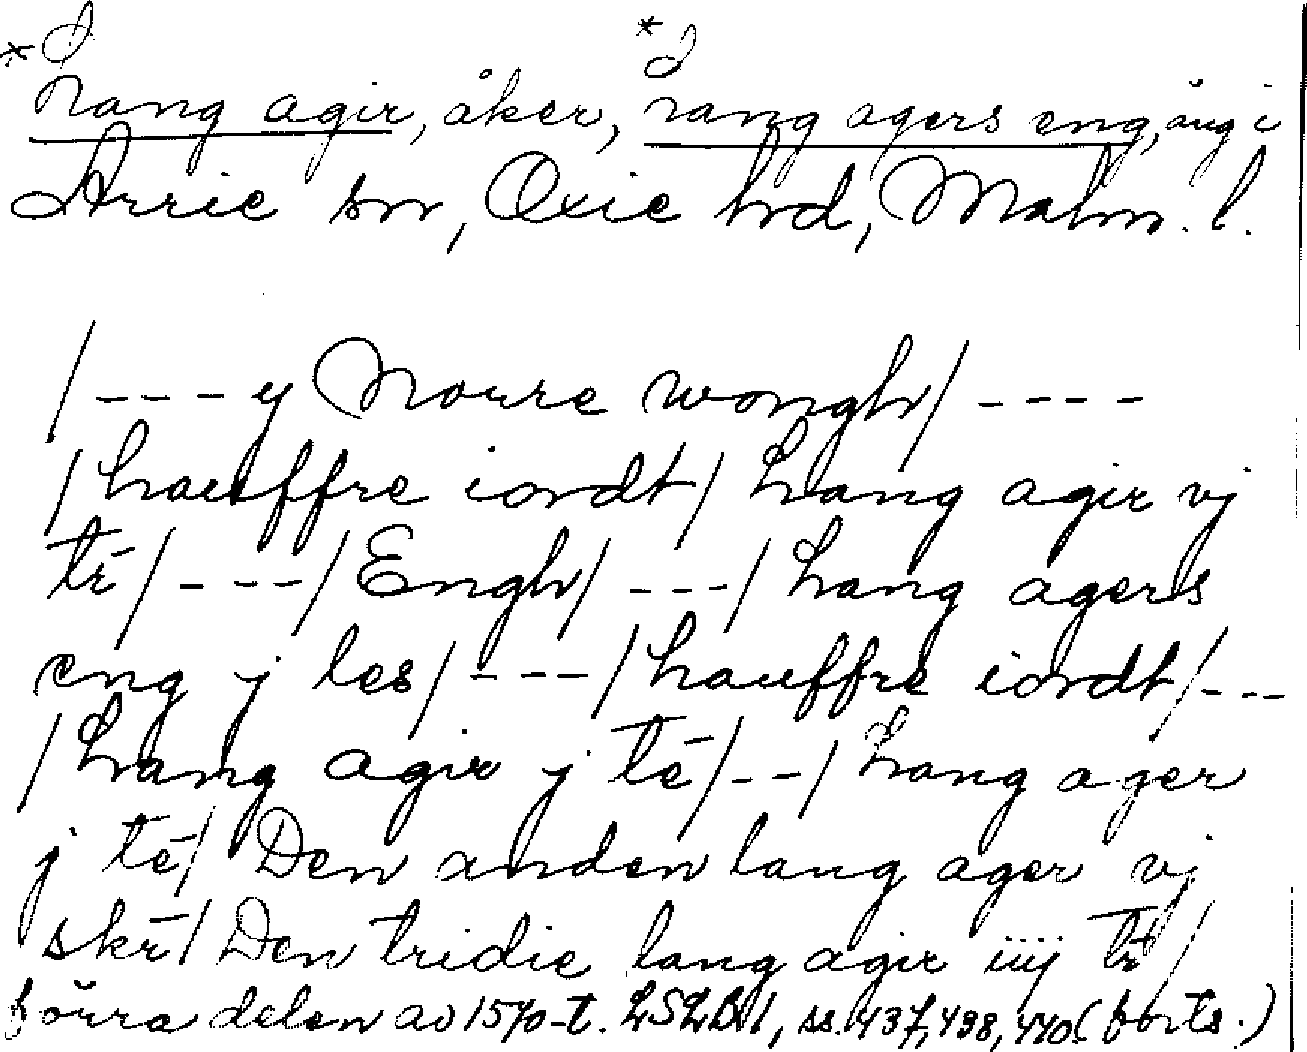 Lang agir, åker, lang agers eng, äng i
Arrie sn, Oxie hrd, Malm. l.
/---y Norre wongh/----
/hauffre iordt/ Lang agir vj
tr̄/---/Engh/---/Lang agers
eng j les/---/hauffre iordt/---
/Lang agir j tē/--/Lang ager
j tē/ Den anden lang ager vj
skr̄/ Den tridie lang agir iiij tr̄/
förra delen av 1570-t. LSLB 1, ss. 437, 438, 440. (forts.)